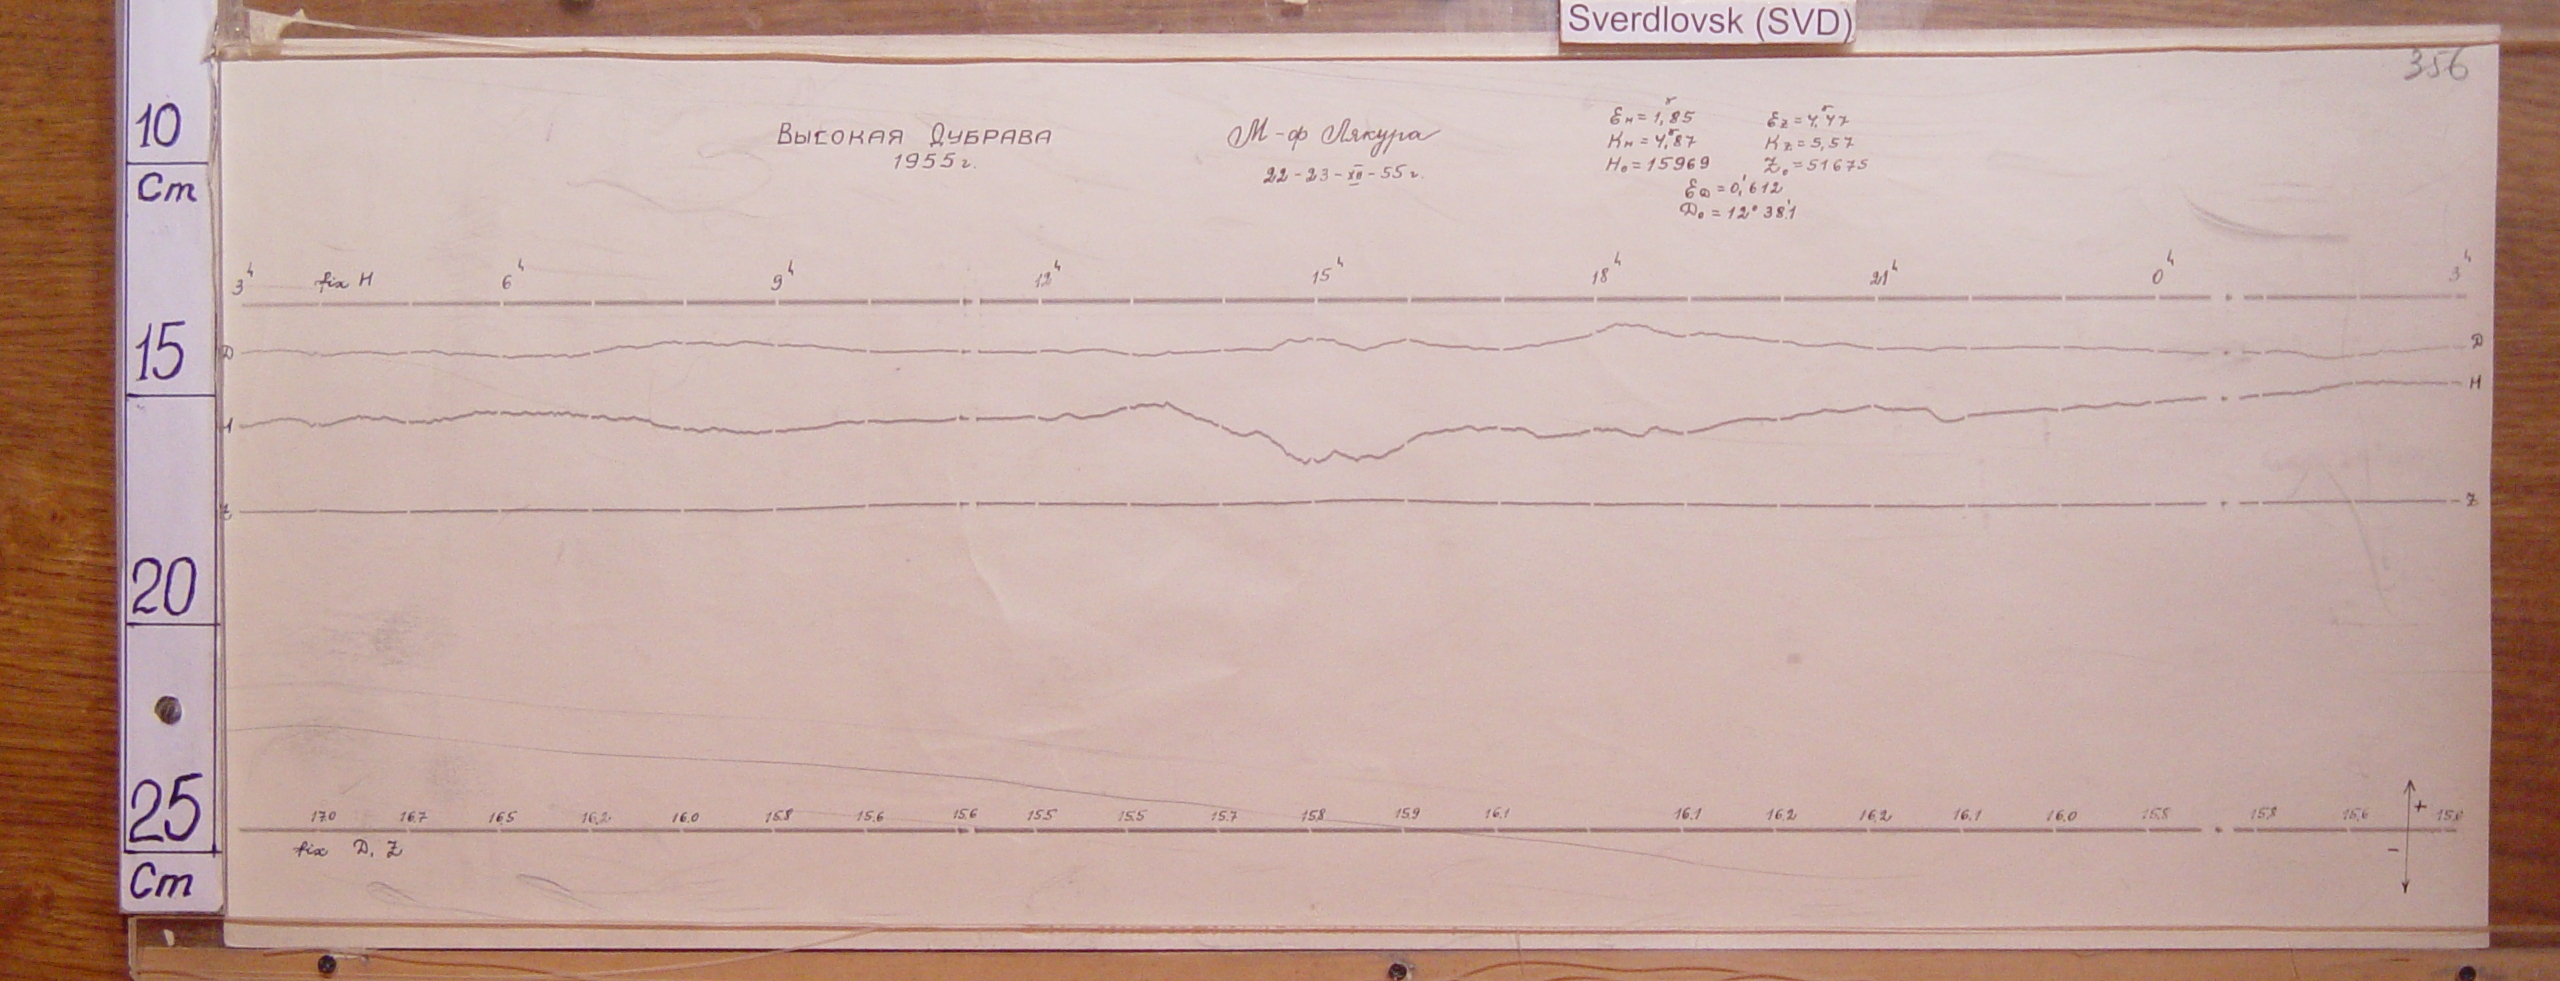 Sverdlovsk (SVD)
356
10
Cm
15
20
25
Cm
Высокая Дубрава
1955 г.
М-ф Лякура
22-23-XII-55 г.
Ен = 1,85 Еz = 4,47
Кн = 4,87 Кz = 5,57
Н₀ = 15969 Z₀ = 51675
ЕD = 0,'612
D₀ = 12° 38,'1
3ʰ fix H 6ʰ 9ʰ 12ʰ 15ʰ 18ʰ 21ʰ 0ʰ 3ʰ
D D
H H
Z Z
17.0 16.7 16.5 16.2 16.0 15.8 15.6 15.6 15.5 15.5 15.7 15.8 15.9 16.1 16.1 16.2 16.2 16.1 16.0 15.8 15.8 15.6
fix D, Z
+
-